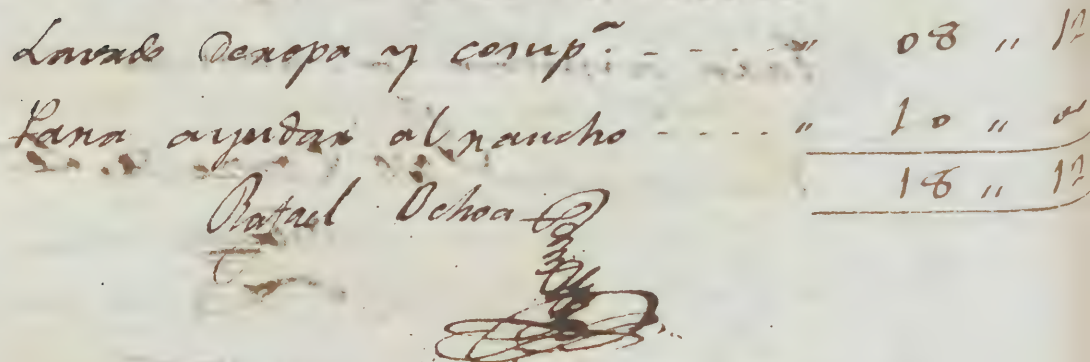 Lavado de ropa y comp.ª - - - - - " 08 " 1º
Para ayudar al rancho - - - - - " 10 "
18 " 1º
Rafael Ochoa